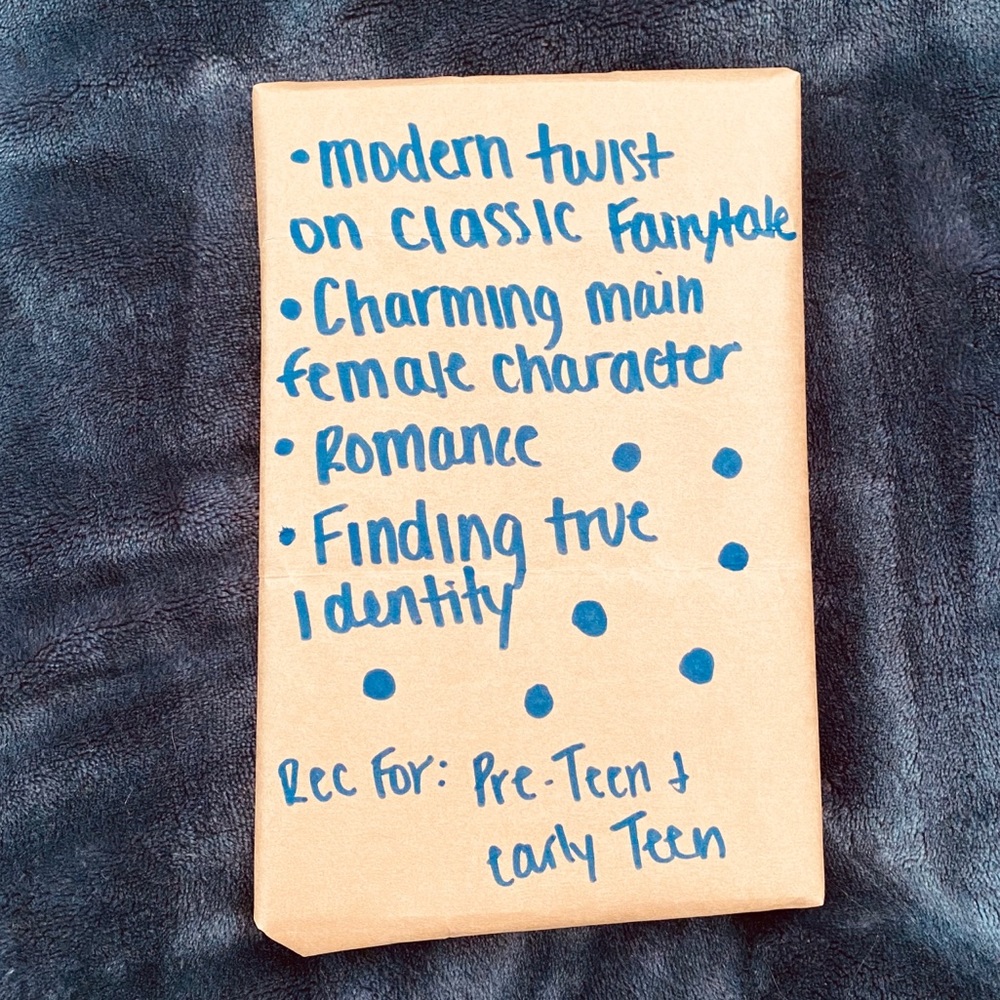 • modern twist
on classic Fairytale
• Charming main
female character
• Romance
• Finding true
Identity
Rec For: Pre-Teen +
early Teen